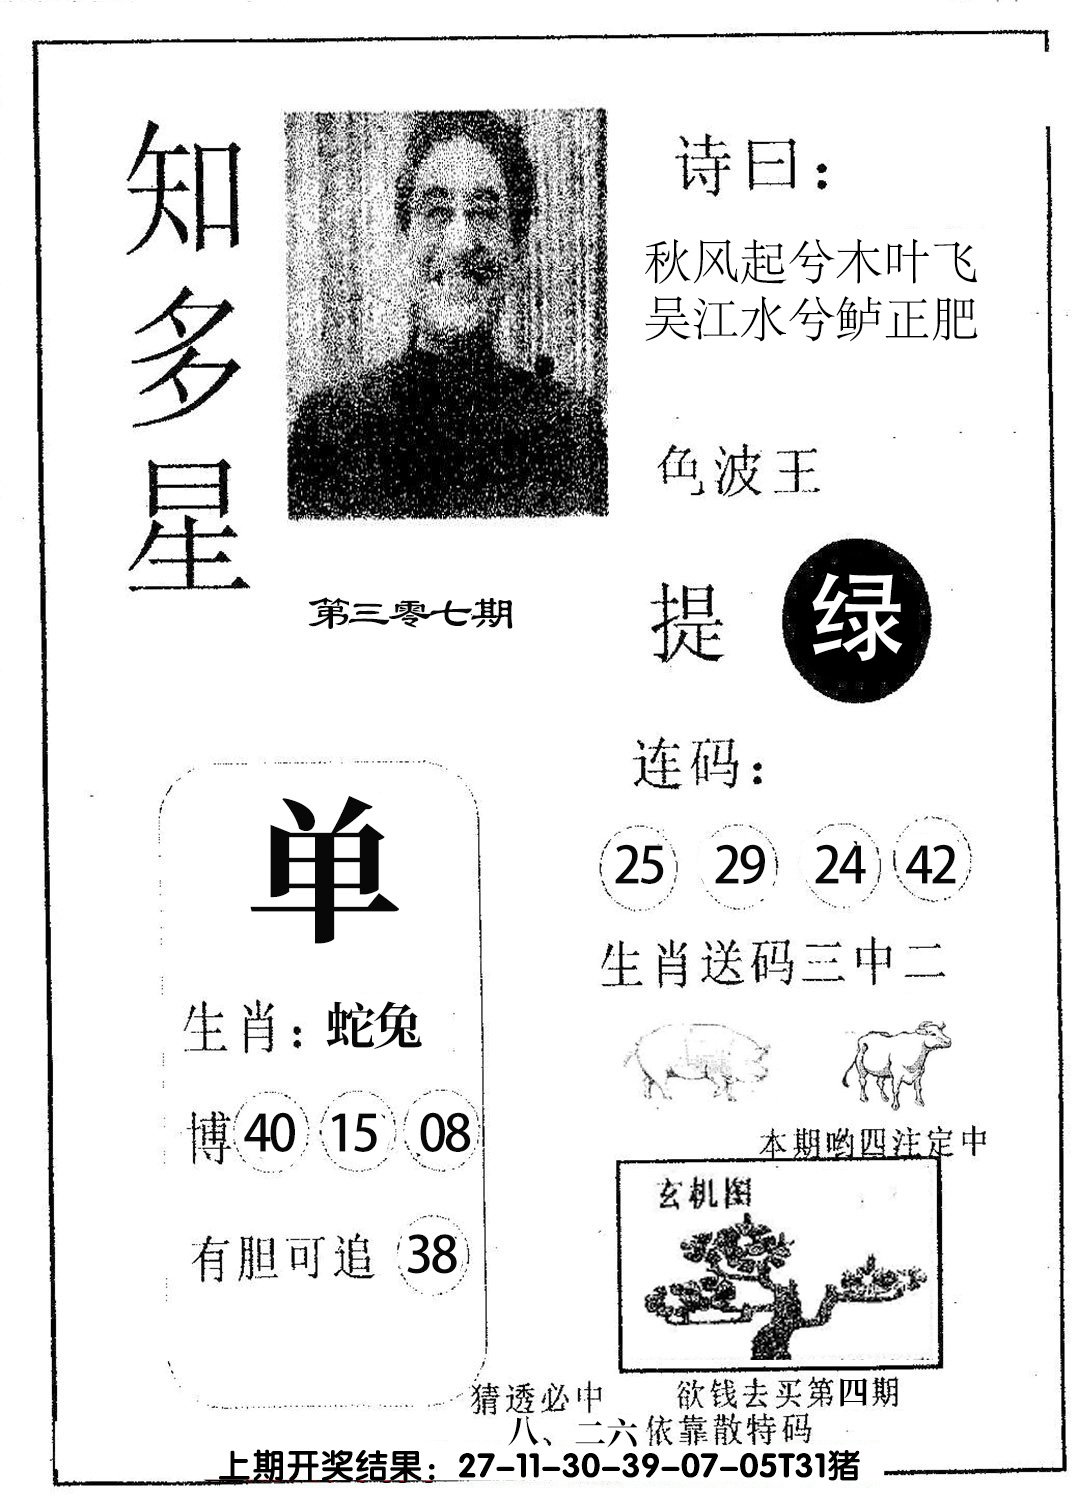 知多星
诗曰：
秋风起兮木叶飞
吴江水兮鲈正肥
色波王
提 绿
第三零七期
连码：
25 29 24 42
生肖送码三中二
单
生肖：蛇兔
博 40 15 08
有胆可追 38
本期哟四注定中
玄机图
猜透必中 欲钱去买第四期
八、二六依靠散特码
上期开奖结果：27-11-30-39-07-05T31猪